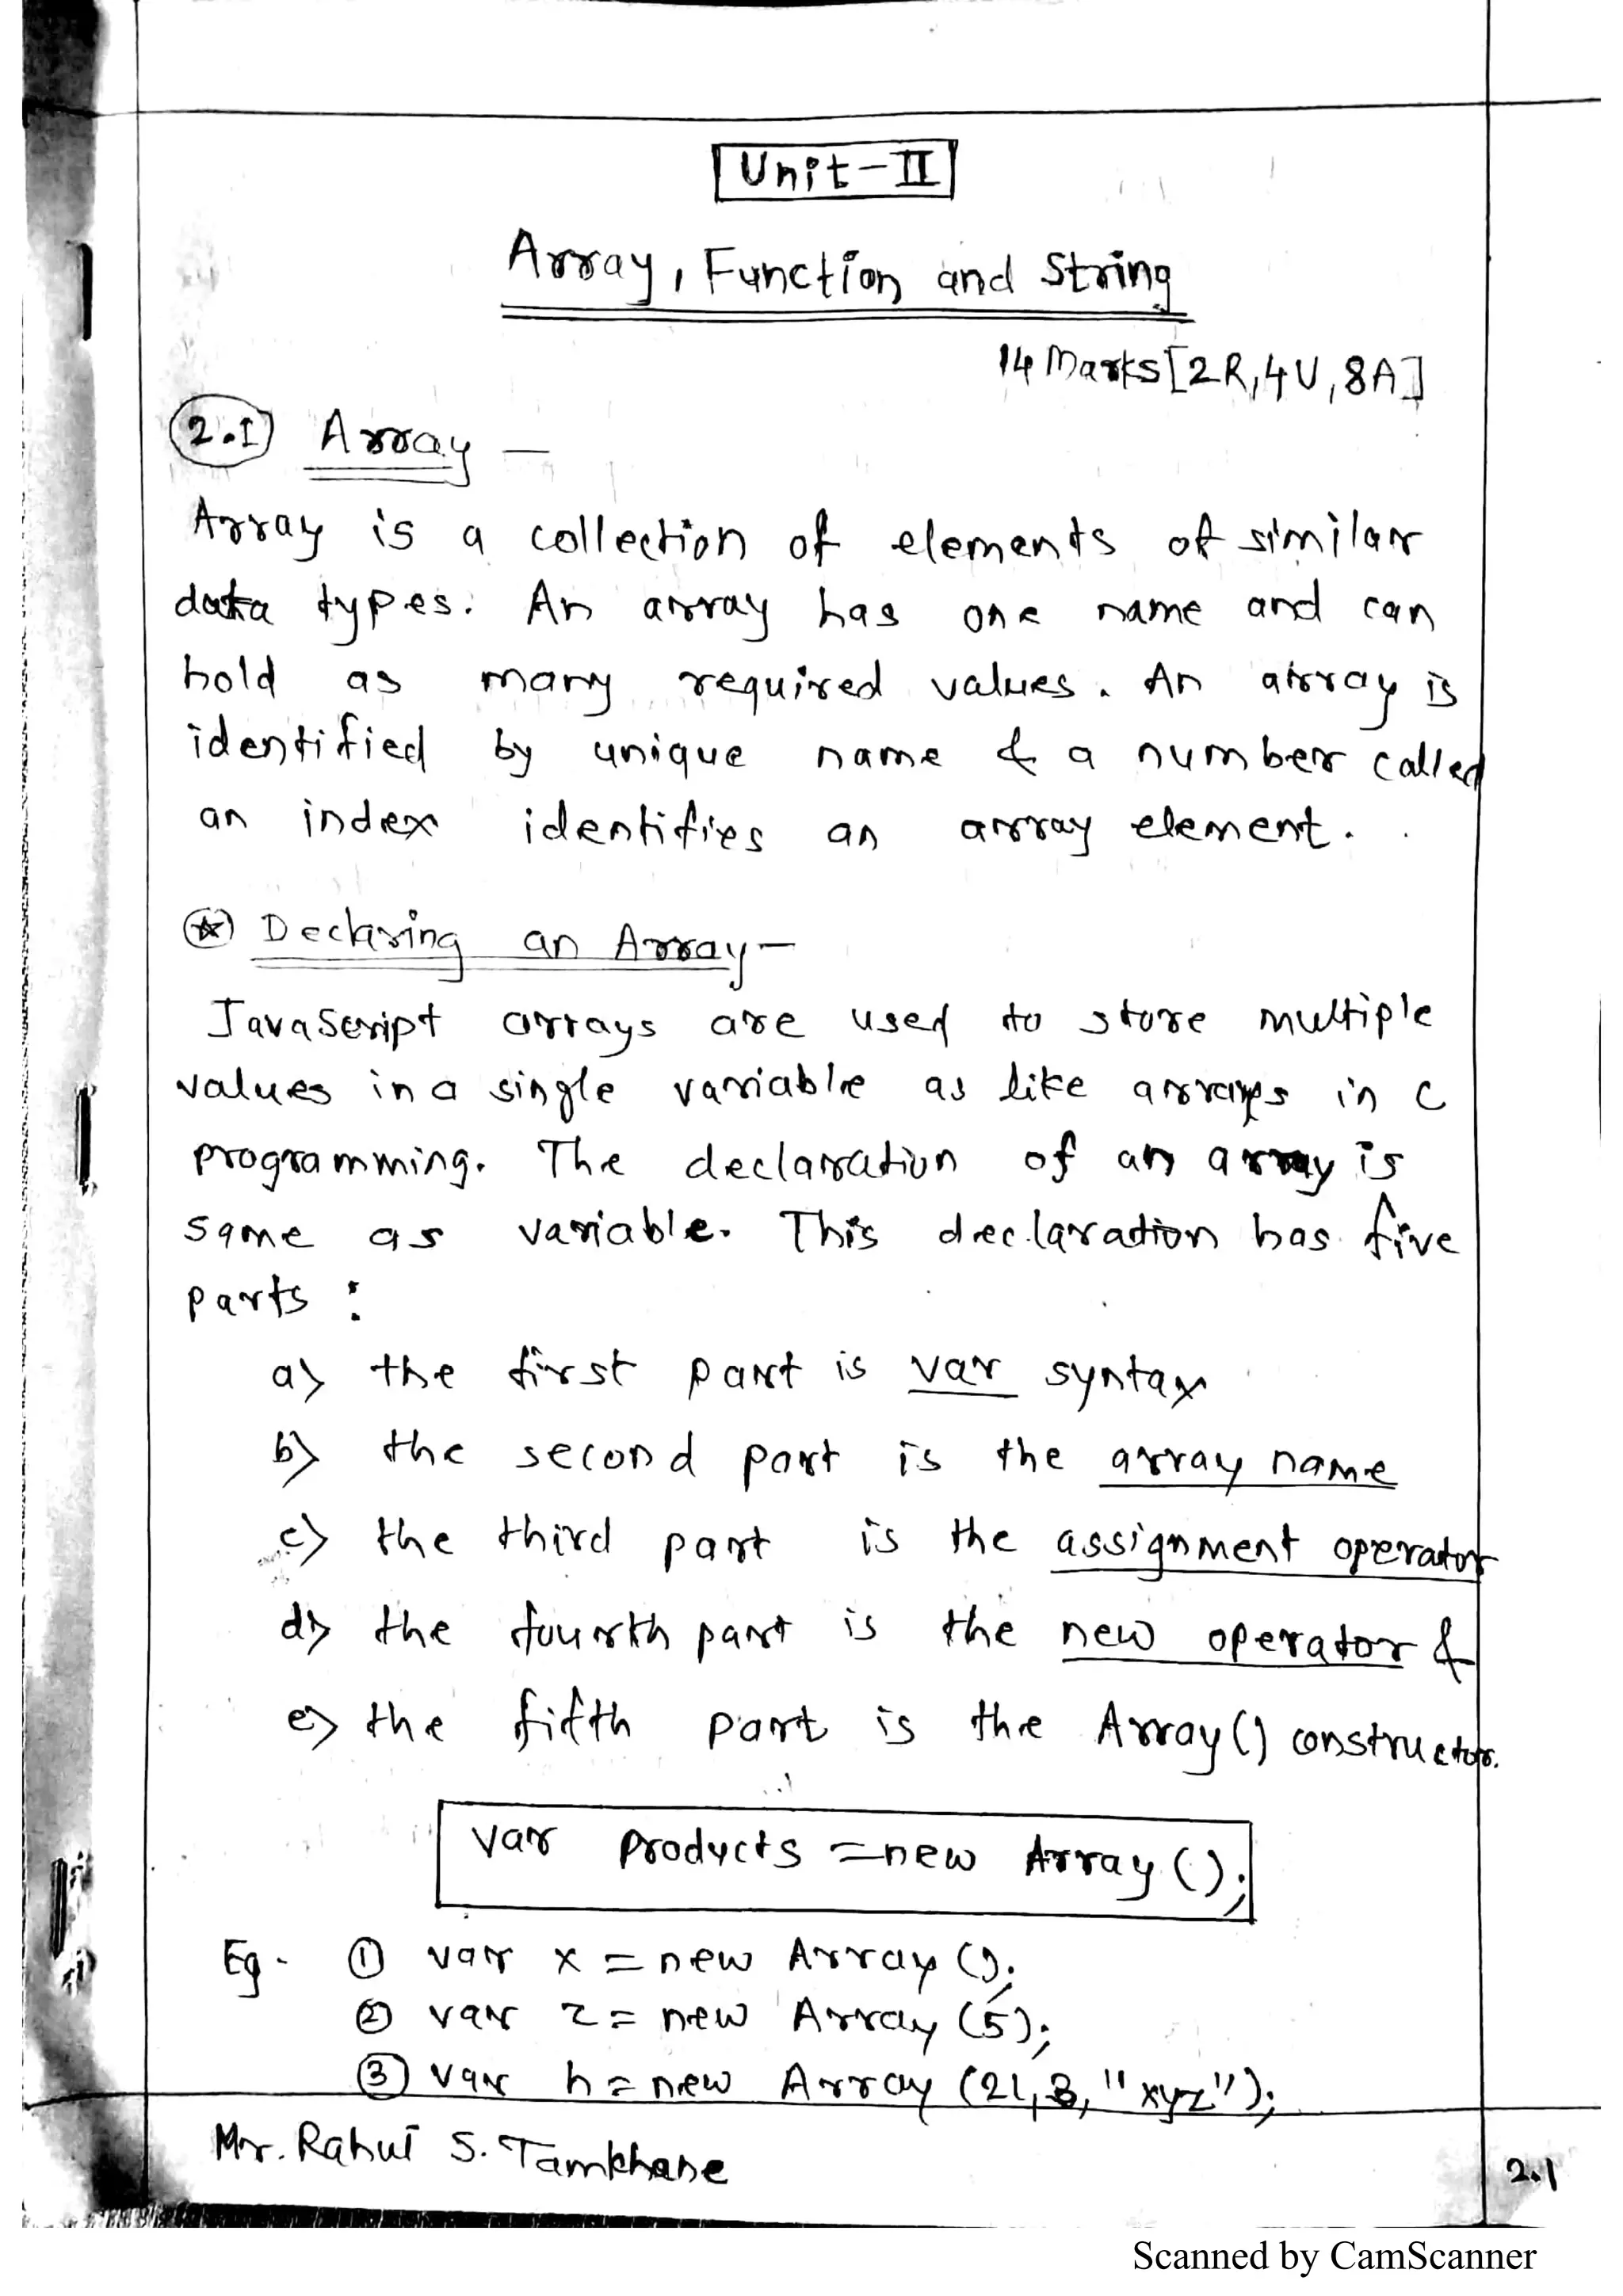 Unit-II
Array, Function and String
14 Marks [2R,4U,8A]
2.1 Array -
Array is a collection of elements of similar
data types. An array has one name and can
hold as many required values. An array is
identified by unique name & a number called
an index identifies an array element.
Declaring an Array -
JavaScript arrays are used to store multiple
values in a single variable as like arrays in C
programming. The declaration of an array is
same as variable. This declaration has five
parts :
a) the first part is var syntax
b) the second part is the array name
c) the third part is the assignment operator
d) the fourth part is the new operator &
e) the fifth part is the Array() constructor.
var products = new Array();
Eg - ① var x = new Array();
② var z = new Array(5);
③ var h = new Array(21,3,"xyz");
Mr. Rahul S. Tamkhane
2.1
Scanned by CamScanner